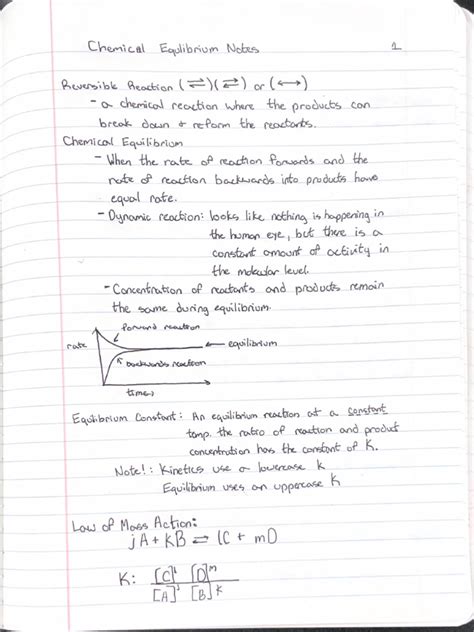 Chemical Equlibrium Notes 1
Reversible Reaction (⇌)(⇄) or (↔)
- a chemical reaction where the products can
break down + reform the reactants.
Chemical Equilibrium
- When the rate of reaction forwards and the
rate of reaction backwards into products have
equal rate.
- Dynamic reaction: looks like nothing is happening in
the human eye, but there is a
constant amount of activity in
the molecular level.
- Concentration of reactants and products remain
the same during equilibrium.
forward reaction
rate
← equilibrium
backwards reaction
time→
Equilibrium Constant: An equilibrium reaction at a constant
temp. the ratio of reaction and product
concentration has the constant of K.
Note!: Kinetics use a lowercase k
Equilibrium uses an uppercase K
Law of Mass Action:
jA + kB ⇌ lC + mD
K: [C]^l [D]^m
[A]^j [B]^k